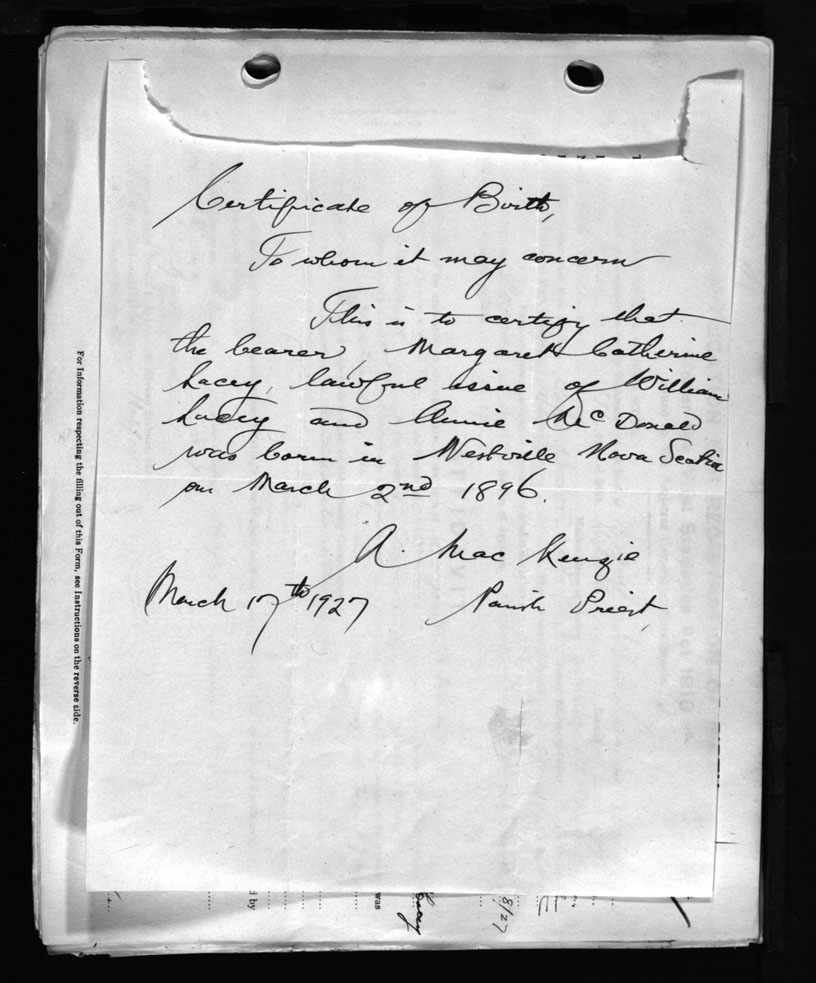 Certificate of Birth,
To whom it may concern
This is to certify that
the bearer, Margaret Catherine
Lacey, lawful issue of William
Lacey and Annie McDonald
was born in Westville Nova Scotia
on March 2nd 1896.
A. MacKenzie
March 17th 1927 Parish Priest,
For Information respecting the filling out of this Form, see Instructions on the reverse side.
d by
was
Lacey
8/27